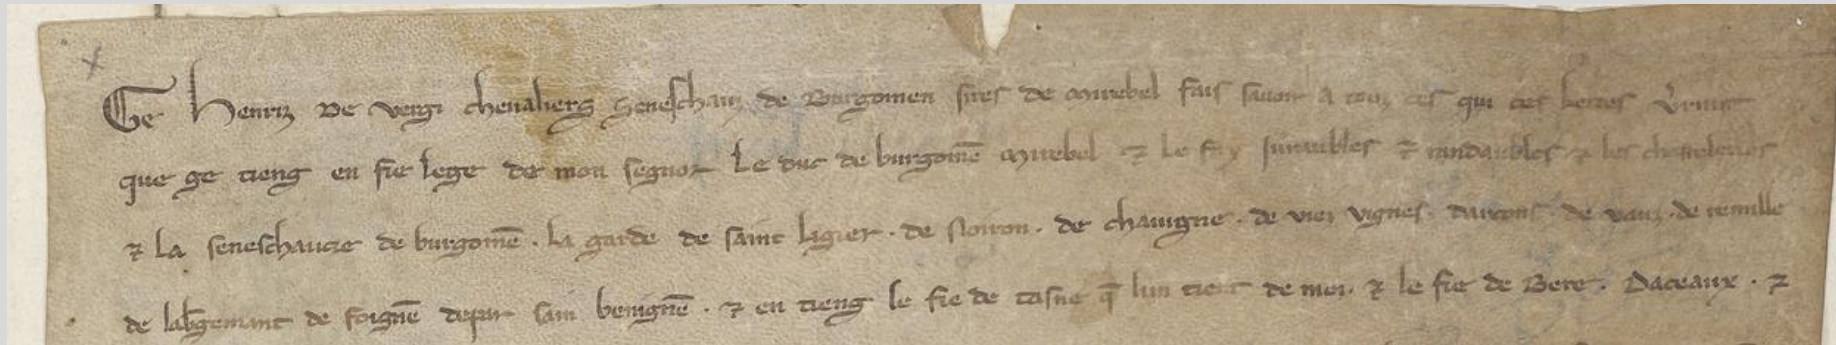 Ge henriz de vergi chevaliers seneschauz de Burgoinen sires de mirebel fais savoir a touz ces qui ces lettres v̾runt
que ge tieng en fie lege de mon segnor le duc de burgoinē mirebel ⁊ le fay juraubles ⁊ randaubles ⁊ les
⁊ la seneschaucie de burgoinē . la garde de saint ligier . de noiron . de chaivigne . de viez vignes . de vauz . de remille
de de foignē depar sain benignē . ⁊ en tieng le fie de tasne q̄ lun tient de moi . ⁊ le fie de Bere . Daceaux . ⁊